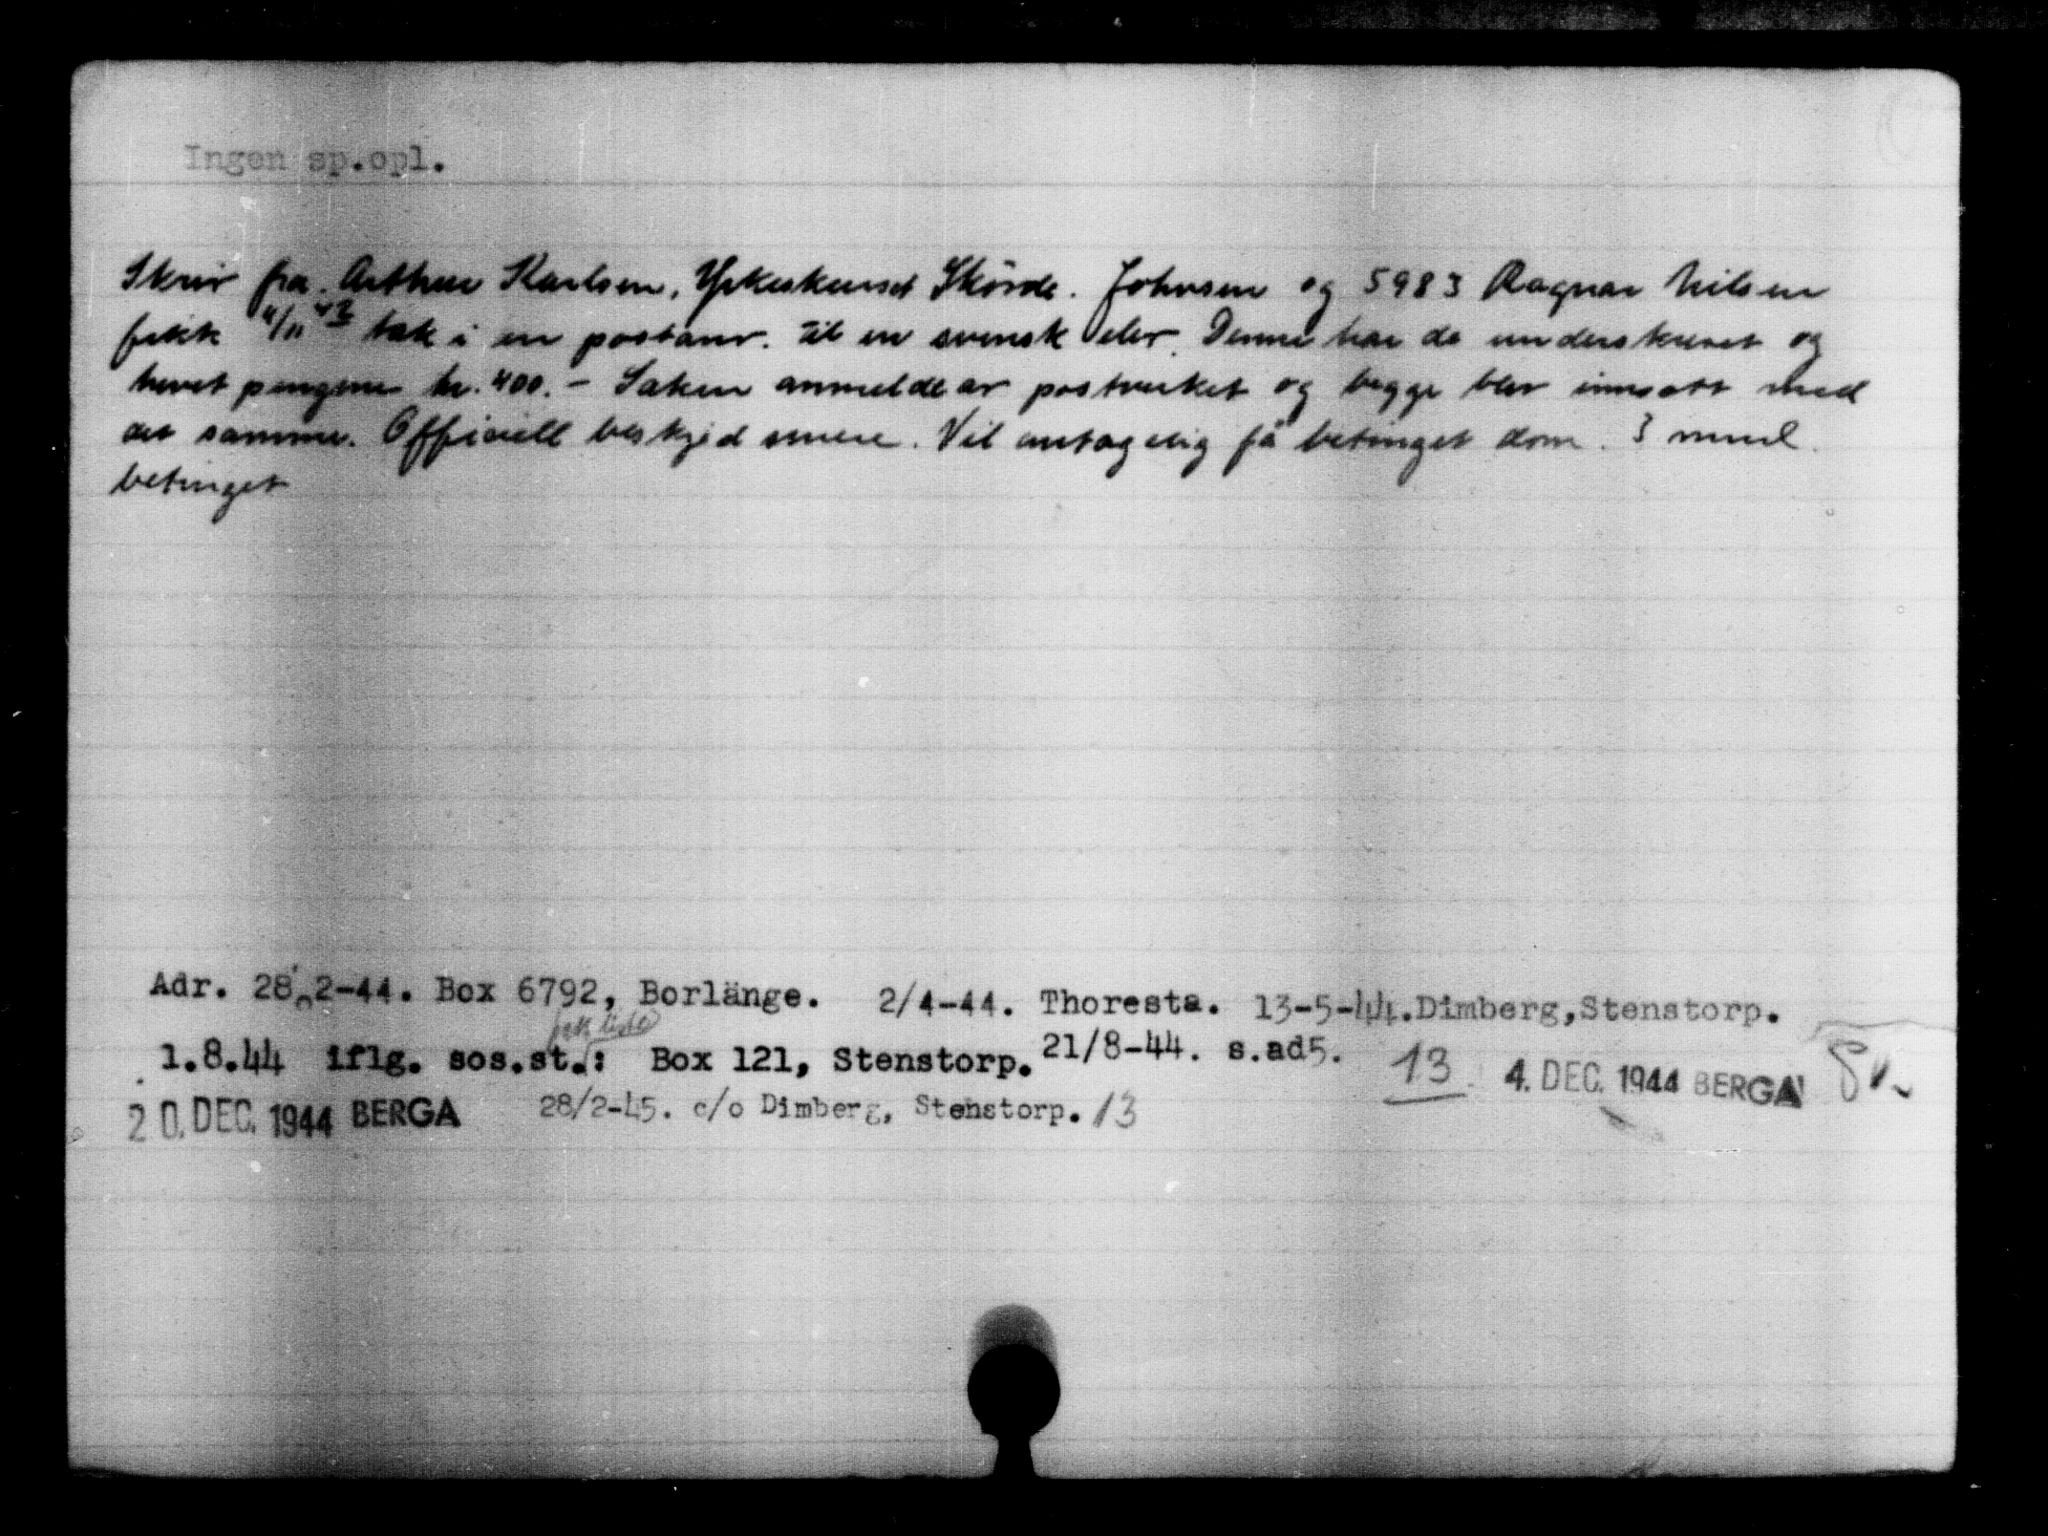 Ingen sp.opl.
Skriv fra. Arthur Karlsen, Yrkeskurset Skövde. Johnsen og 5983 Ragnar Nilsen
fikk 4/11 43 tak i en postanv. til en svensk elev. Denne har de underskrevet og
hevet pengene kr. 400.- Saken anmeldt av postverket og begge blev innsatt med
det samme. Officiell beskjed senere. Vil antagelig få betinget dom. 3 mnd.
betinget
Adr. 28.2-44. Box 6792, Borlänge. 2/4-44. Thoresta. 13-5-44. Dimberg, Stenstorp.
liste
1.8.44 iflg. sos.st.: Box 121, Stenstorp. 21/8-44. s.ad5. 13 4. DEC. 1944 BERGA
20. DEC. 1944 BERGA 28/2-45. c/o Dimberg, Stenstorp. 13